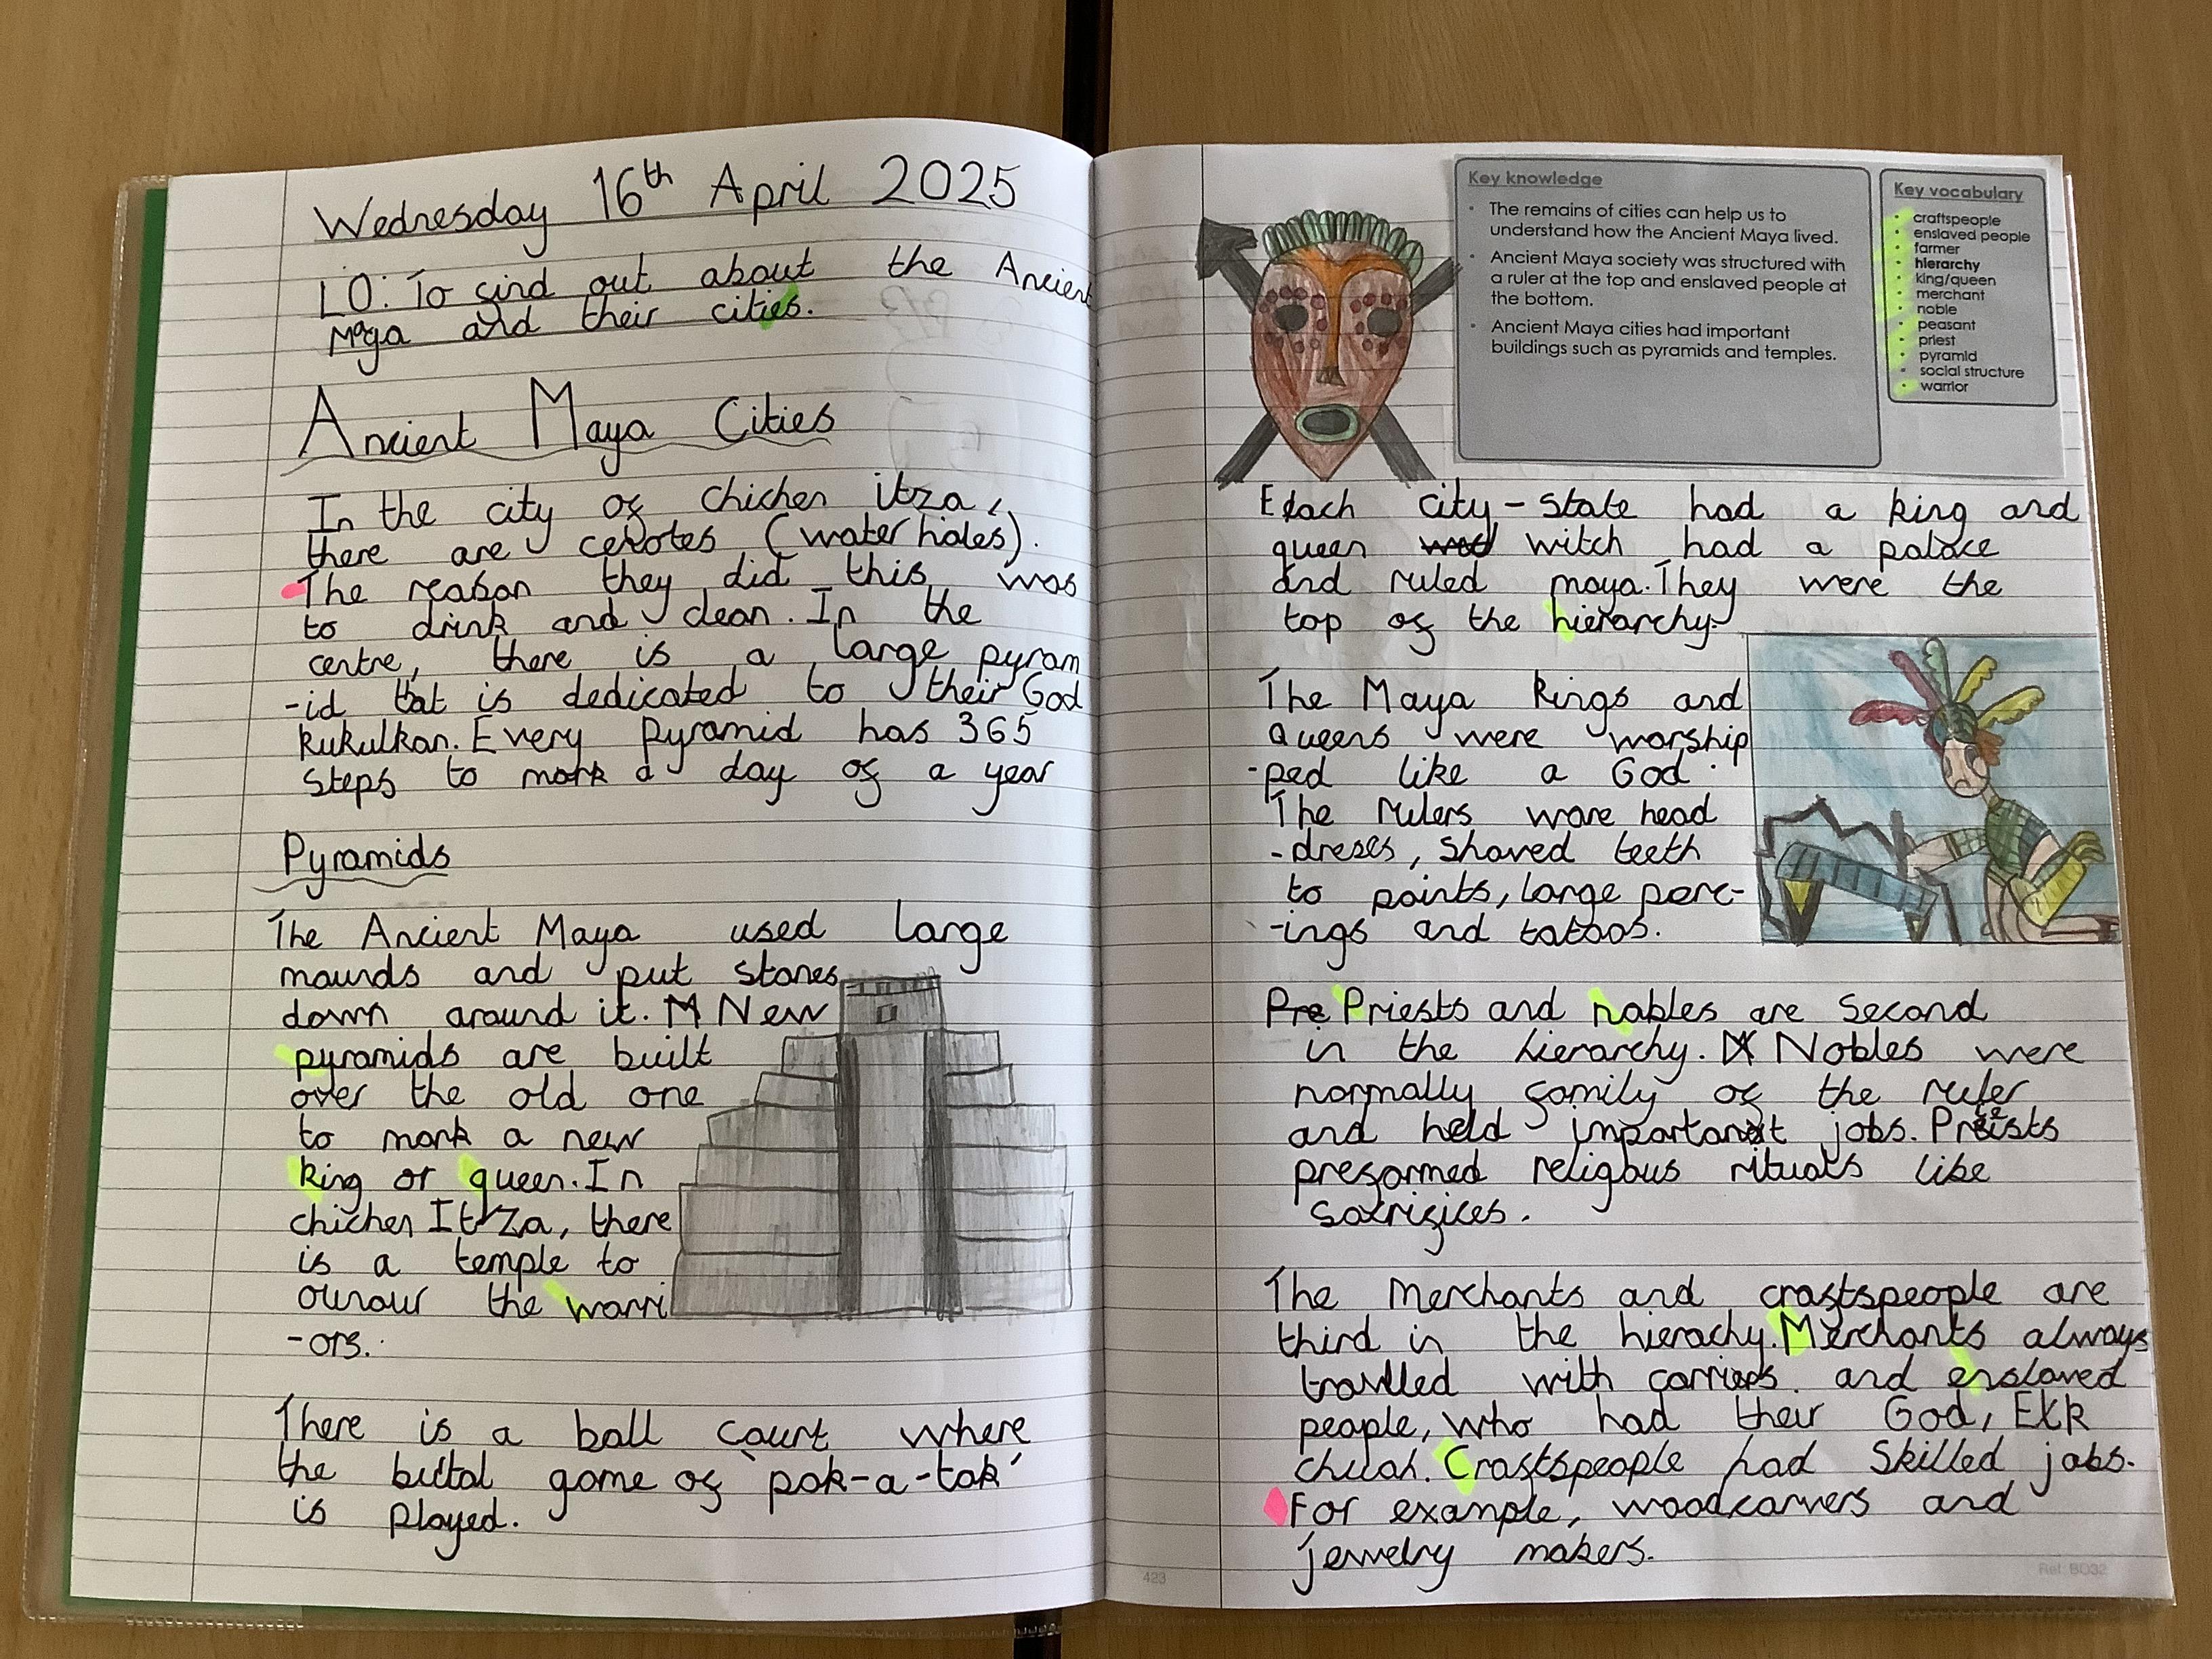 Wednesday 16th April 2025
LO: To find out about the Ancient
Maya and their cities.
Ancient Maya Cities
In the city of chichen itza,
there are cenotes (water holes).
The reason they did this was
to drink and clean. In the
centre, there is a large pyram
-id that is dedicated to their God
kukulkan. Every pyramid has 365
steps to mark a day of a year
Pyramids
The Ancient Maya used large
mounds and put stones
down around it. M New
pyramids are built
over the old one
to mark a new
king or queen. In
chichen Itza, there
is a temple to
ounour the warri
-ors.
There is a ball court where
the butal game of 'pok-a-tok'
is played.
Key knowledge
• The remains of cities can help us to
understand how the Ancient Maya lived.
• Ancient Maya society was structured with
a ruler at the top and enslaved people at
the bottom.
• Ancient Maya cities had important
buildings such as pyramids and temples.
Key vocabulary
• craftspeople
• enslaved people
• farmer
• hierarchy
• king/queen
• merchant
• noble
• peasant
• priest
• pyramid
• social structure
• warrior
Each city-state had a king and
queen witch had a palace
and ruled maya. They were the
top of the hierarchy.
The Maya kings and
Queens were worship
-ped like a God.
The rulers ware head
-dreses, shaved teeth
to points, large perc-
-ings and tatoos.
Pre Priests and nobles are second
in the hierarchy. Nobles were
normally family of the ruler
and held important jobs. Priests
preformed religous rituals like
sacrifices.
The merchants and craftspeople are
third in the hierachy. Merchants always
travlled with carriers and enslaved
people, who had their God, Ek
chuah. Craftspeople had skilled jobs.
For example, woodcarvers and
jewelry makers.
423
Ref: BO32